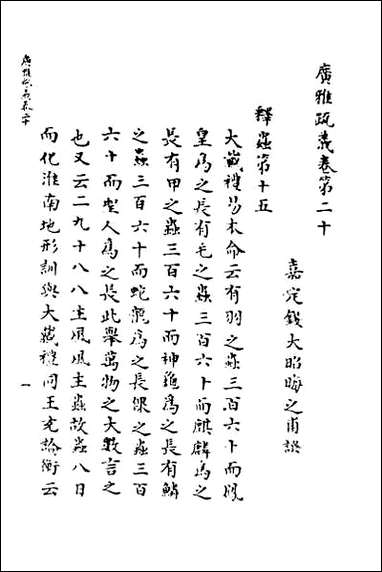 廣雅疏義卷第二十
嘉定錢大昭晦之甫譔
釋蟲第十五
大戴禮易本命云有羽之蟲三百六十而鳳
皇為之長有毛之蟲三百六十而麒麟為之
長有甲之蟲三百六十而神龜為之長有鱗
之蟲三百六十而蛇龍為之長倮之蟲三百
六十而聖人為之長此舉萬物之大數言之
也又云二九十八八主風風主蟲故蟲八日
而化淮南地形訓與大戴禮同王充論衡云
廣雅疏義卷二十
一